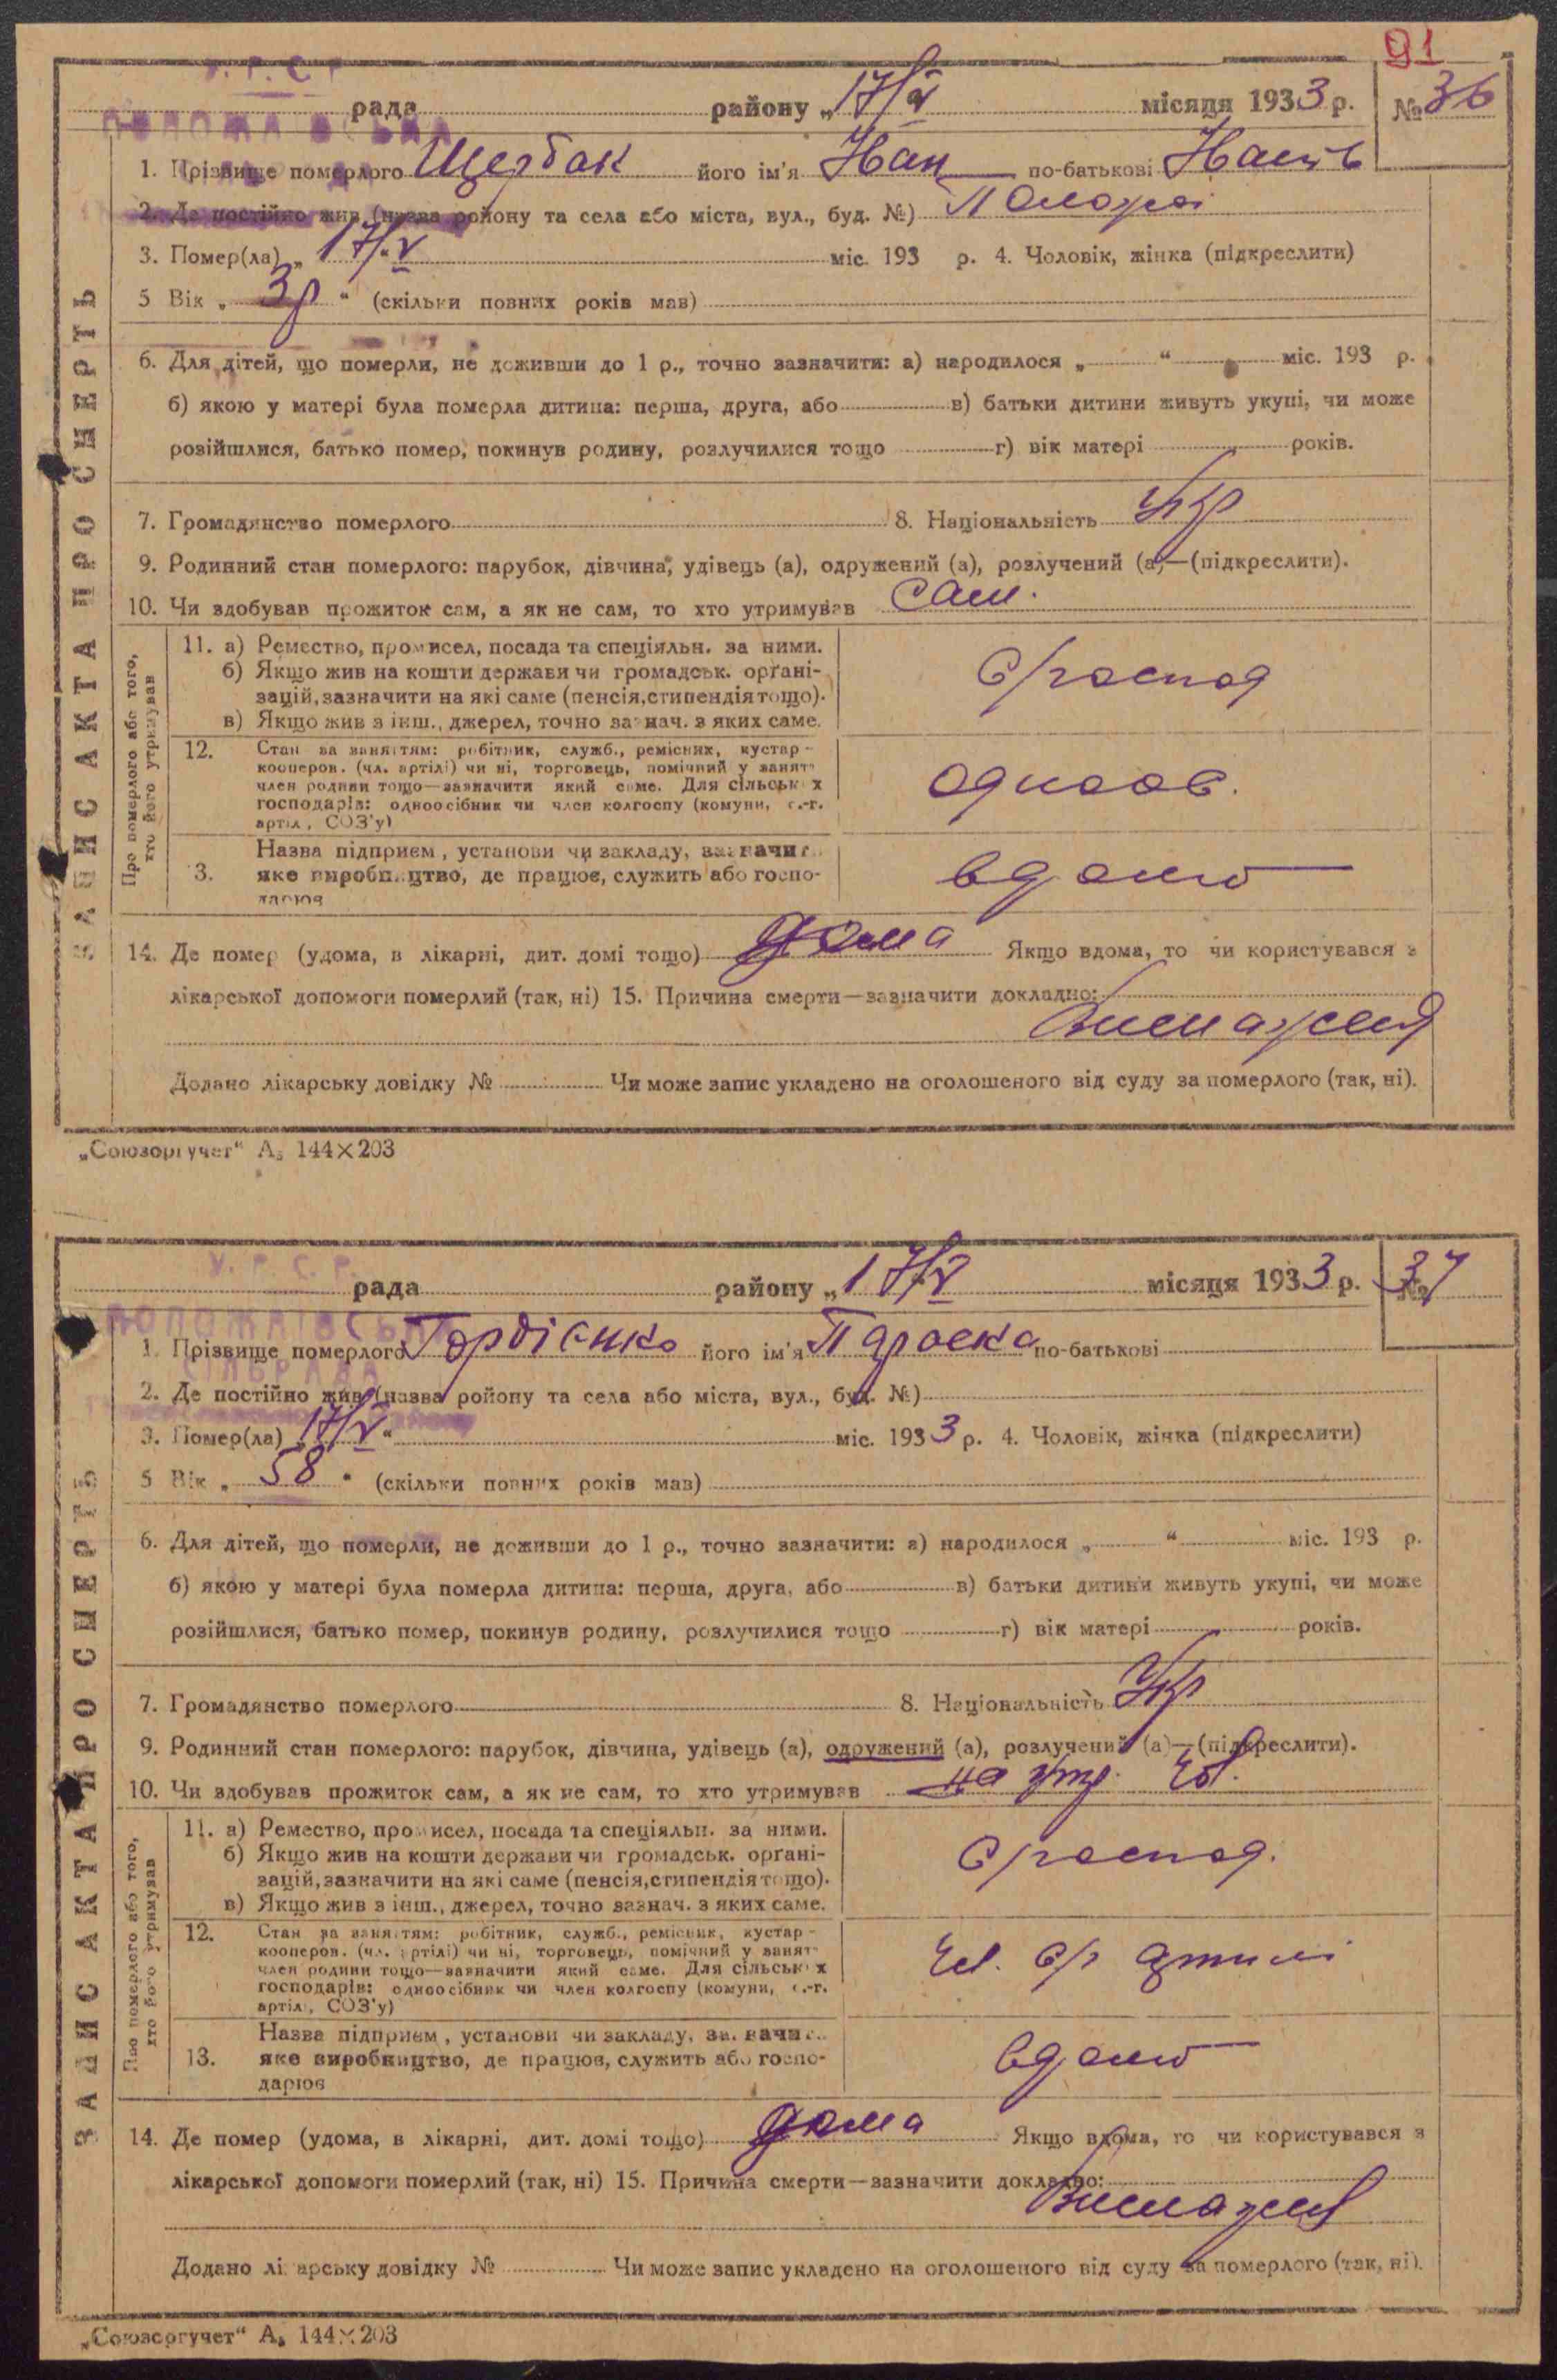 91
У. Р. С. Р.
рада району „ 17/V місяця 1933 р. № 36
1. Прізвище померлого Щербак його ім'я Иван по-батькові
2. Де постійно жив (назва ройону та села або міста, вул., буд. №) Пологи
3. Помер(ла) „ 17/V " міс. 193 р. 4. Чоловік, жінка (підкреслити)
5 Вік „ 3р " (скільки повних років мав)
6. Для дітей, що померли, не доживши до 1 р., точно зазначити: а) народилося „ " міс. 193 р.
б) якою у матері була померла дитина: перша, друга, або в) батьки дитини живуть укупі, чи може
розійшлися, батько помер, покинув родину, розлучилися тощо г) вік матері років.
7. Громадянство померлого 8. Національність Укр
9. Родинний стан померлого: парубок, дівчина, удівець (а), одружений (а), розлучений (а)—(підкреслити).
10. Чи здобував прожиток сам, а як не сам, то хто утримував сам.
ЗАПИС АКТА ПРО СМЕРТЬ
Про померлого або того, хто його утримував
11. а) Ремество, промисел, посада та спеціяльн. за ними.
б) Якщо жив на кошти держави чи громадськ. орґані-
зацій, зазначити на які саме (пенсія, стипендія тощо).
в) Якщо жив з інш., джерел, точно зазнач. з яких саме.
С/господ
12. Стан за заняттям: робітник, служб., ремісник, кустар-
кооперов. (чл. артілі) чи ні, торговець, помічний у занят
член родини тощо—зазначити який саме. Для сільських
господарів: одноосібник чи член колгоспу (комуни, с.-г.
артіл, СОЗ'у)
одноос.
13. Назва підприєм, установи чи закладу, зазначит
яке виробництво, де працює, служить або госпо-
дарює
вдома
14. Де помер (удома, в лікарні, дит. домі тощо) дома Якщо вдома, то чи користувався з
лікарської допомоги померлий (так, ні) 15. Причина смерти—зазначити докладно:
Виснаження
Додано лікарську довідку № Чи може запис укладено на оголошеного від суду за померлого (так, ні).
„Союзоргучет" А₅ 144×203
У. Р. С. Р.
рада району „ 17/V місяця 1933 р. № 37
1. Прізвище померлого Гордієнко його ім'я Параска по-батькові
2. Де постійно жив (назва ройону та села або міста, вул., буд. №)
3. Помер(ла) „ 17/V " міс. 1933 р. 4. Чоловік, жінка (підкреслити)
5 Вік „ 58 " (скільки повних років мав)
6. Для дітей, що померли, не доживши до 1 р., точно зазначити: а) народилося „ " міс. 193 р.
б) якою у матері була померла дитина: перша, друга, або в) батьки дитини живуть укупі, чи може
розійшлися, батько помер, покинув родину, розлучилися тощо г) вік матері років.
7. Громадянство померлого 8. Національність Укр
9. Родинний стан померлого: парубок, дівчина, удівець (а), одружений (а), розлучений (а)—(підкреслити).
10. Чи здобував прожиток сам, а як не сам, то хто утримував на утр.
ЗАПИС АКТА ПРО СМЕРТЬ
Про померлого або того, хто його утримував
11. а) Ремество, промисел, посада та спеціяльн. за ними.
б) Якщо жив на кошти держави чи громадськ. орґані-
зацій, зазначити на які саме (пенсія, стипендія тощо).
в) Якщо жив з інш., джерел, точно зазнач. з яких саме.
С/господ.
12. Стан за заняттям: робітник, служб., ремісник, кустар-
кооперов. (чл. артілі) чи ні, торговець, помічний у занят
член родини тощо—зазначити який саме. Для сільських
господарів: одноосібник чи член колгоспу (комуни, с.-г.
артіл, СОЗ'у)
чл. с/г артилі
13. Назва підприєм, установи чи закладу, зазначит
яке виробництво, де працює, служить або госпо-
дарює
вдома
14. Де помер (удома, в лікарні, дит. домі тощо) дома Якщо вдома, то чи користувався з
лікарської допомоги померлий (так, ні) 15. Причина смерти—зазначити докладно:
Виснажен
Додано лікарську довідку № Чи може запис укладено на оголошеного від суду за померлого (так, ні).
„Союзоргучет" А₅ 144×203